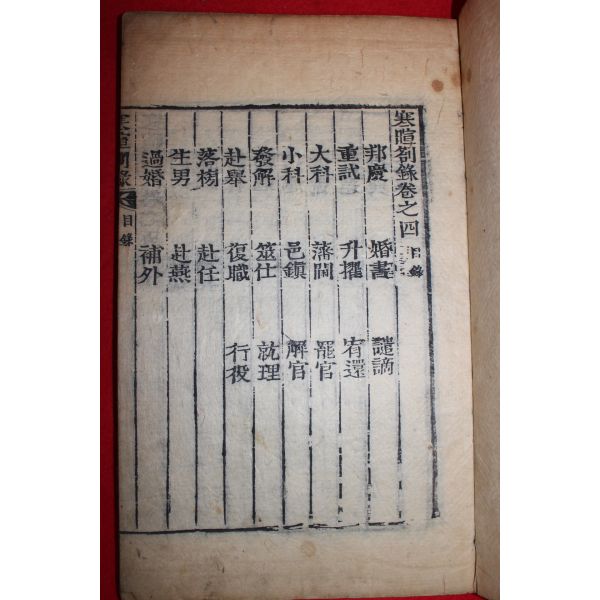 寒暄劄錄卷之四 目錄
邦慶 婚書 譴謫
重試 升擢 宥還
大科 藩閫 罷官
小科 邑鎭 解官
發解 筮仕 就理
赴舉 復職 行役
落榜 赴任
生男 赴燕
過婚 補外
目錄